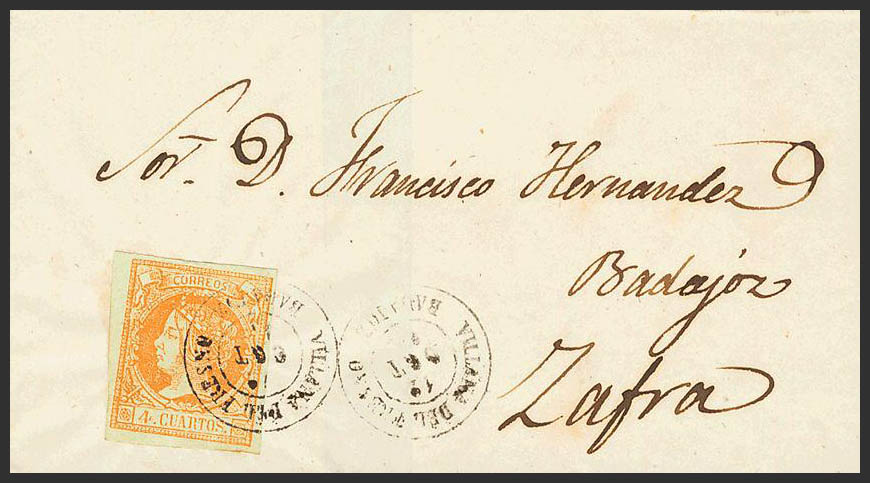 Sor. D. Francisco Hernandez
Badajóz
Zafra
CORREOS
4 CUARTOS.
VILLANª DEL FRESNO
BADAJOZ
VILLANª DEL FRESNO
BADAJOZ